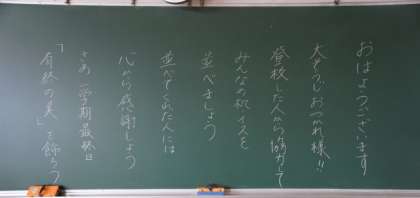 おはようございます
大そうじおつかれ様!!
登校した人から協力して
みんなの机イスを
並べましょう
並べてあた人には
心から感謝しよう
さあ 二学期最終日
「有終の美」を飾ろう